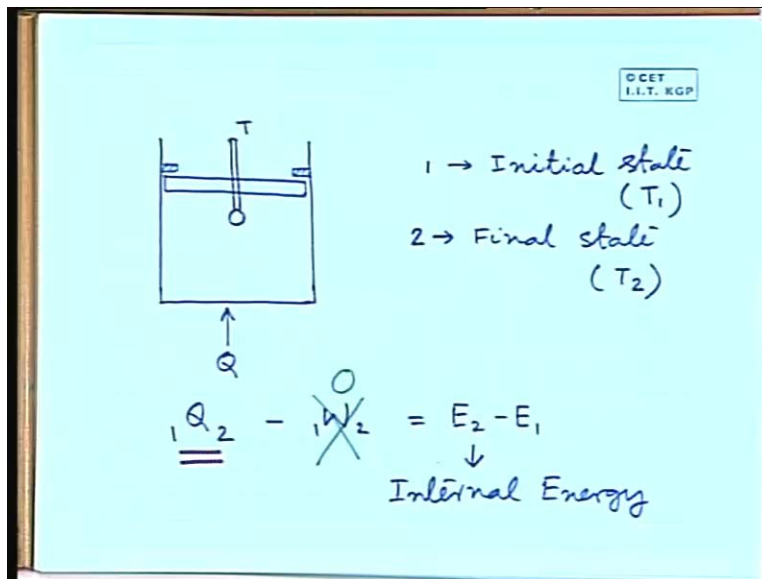 © CET
I.I.T. KGP
T
1 → Initial state
(T₁)
2 → Final state
(T₂)
Q
₁Q₂ - ₁W₂ = E₂ - E₁
O
↓
Internal Energy